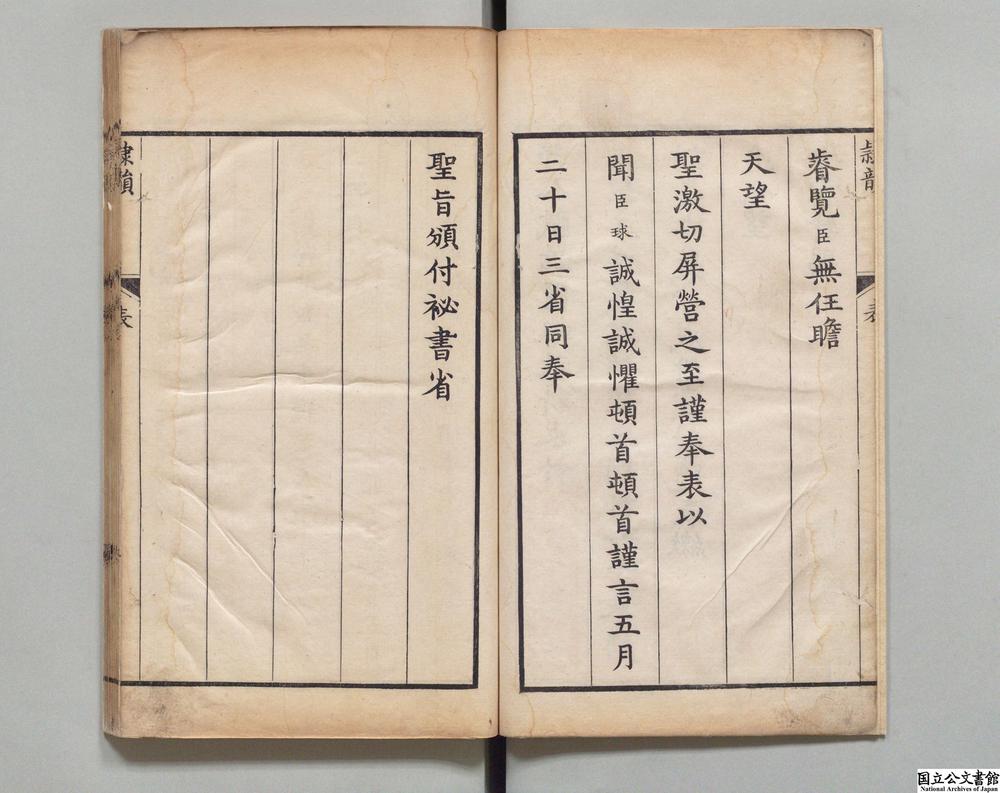 睿覽臣無任瞻
天望
聖激切屏營之至謹奉表以
聞臣球誠惶誠懼頓首頓首謹言五月
二十日三省同奉
聖旨頒付祕書省
隸韻
表
国立公文書館
National Archives of Japan